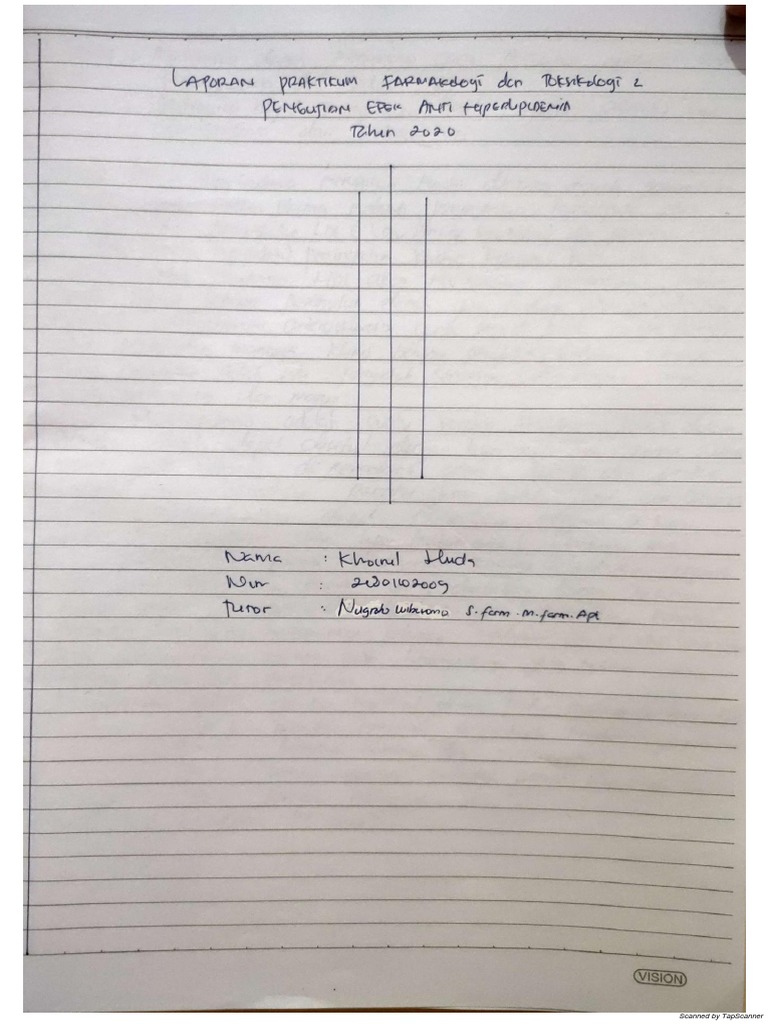 LAPORAN PRAKTIKUM FARMAKologi dan Toksikologi 2
PENGUJIAN EFEK ANTI Hiperlipidemia
Tahun 2020
Nama : Khoirul Huda
Nim :
Tutor : Nugroho Wibisono S.farm.M.farm.Apt
VISION
Scanned by TapScanner